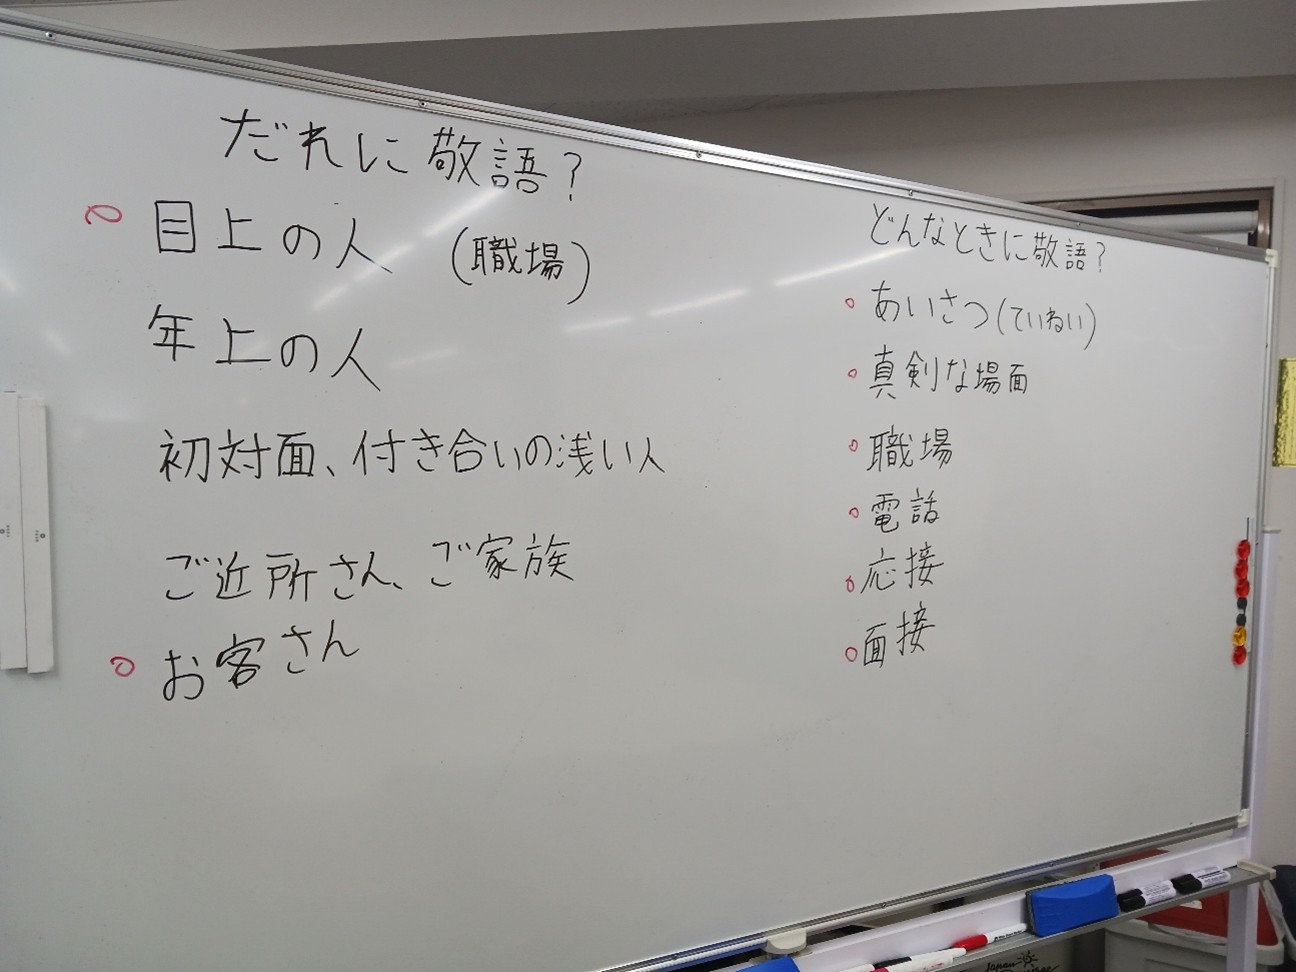 だれに敬語？
目上の人 （職場）
年上の人
初対面、付き合いの浅い人
ご近所さん、ご家族
お客さん
どんなときに敬語？
あいさつ（ていねい）
真剣な場面
職場
電話
応接
面接